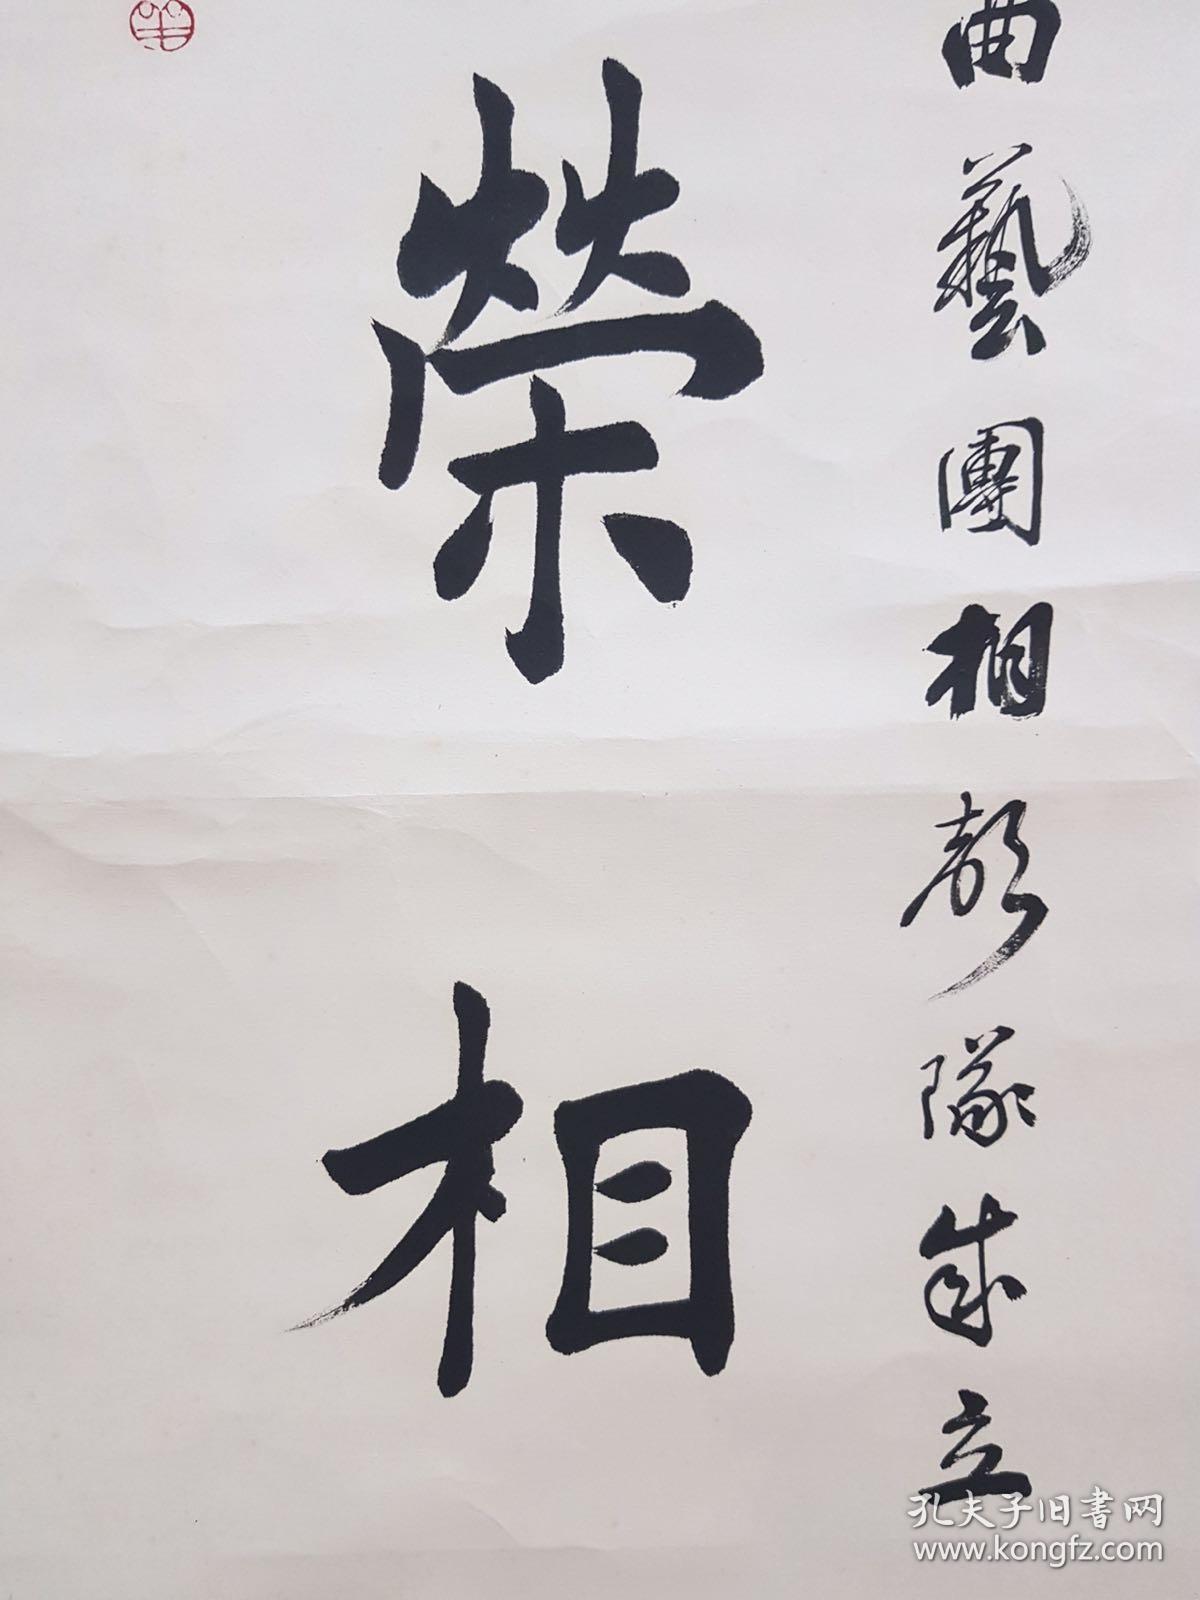 曲藝團相声隊成立
榮相
孔夫子旧书网
www.kongfz.com